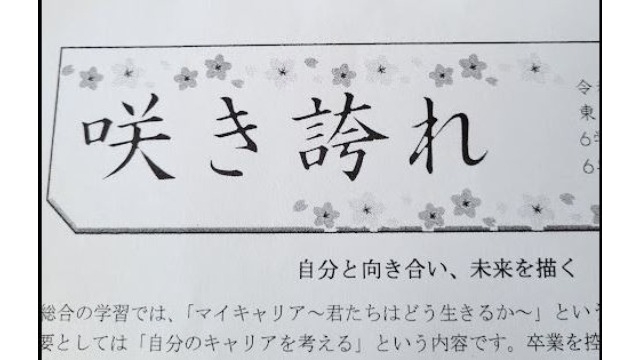 咲き誇れ
令
東
6
6
自分と向き合い、未来を描く
総合の学習では、「マイキャリア～君たちはどう生きるか～」とい
要としては「自分のキャリアを考える」という内容です。卒業を控